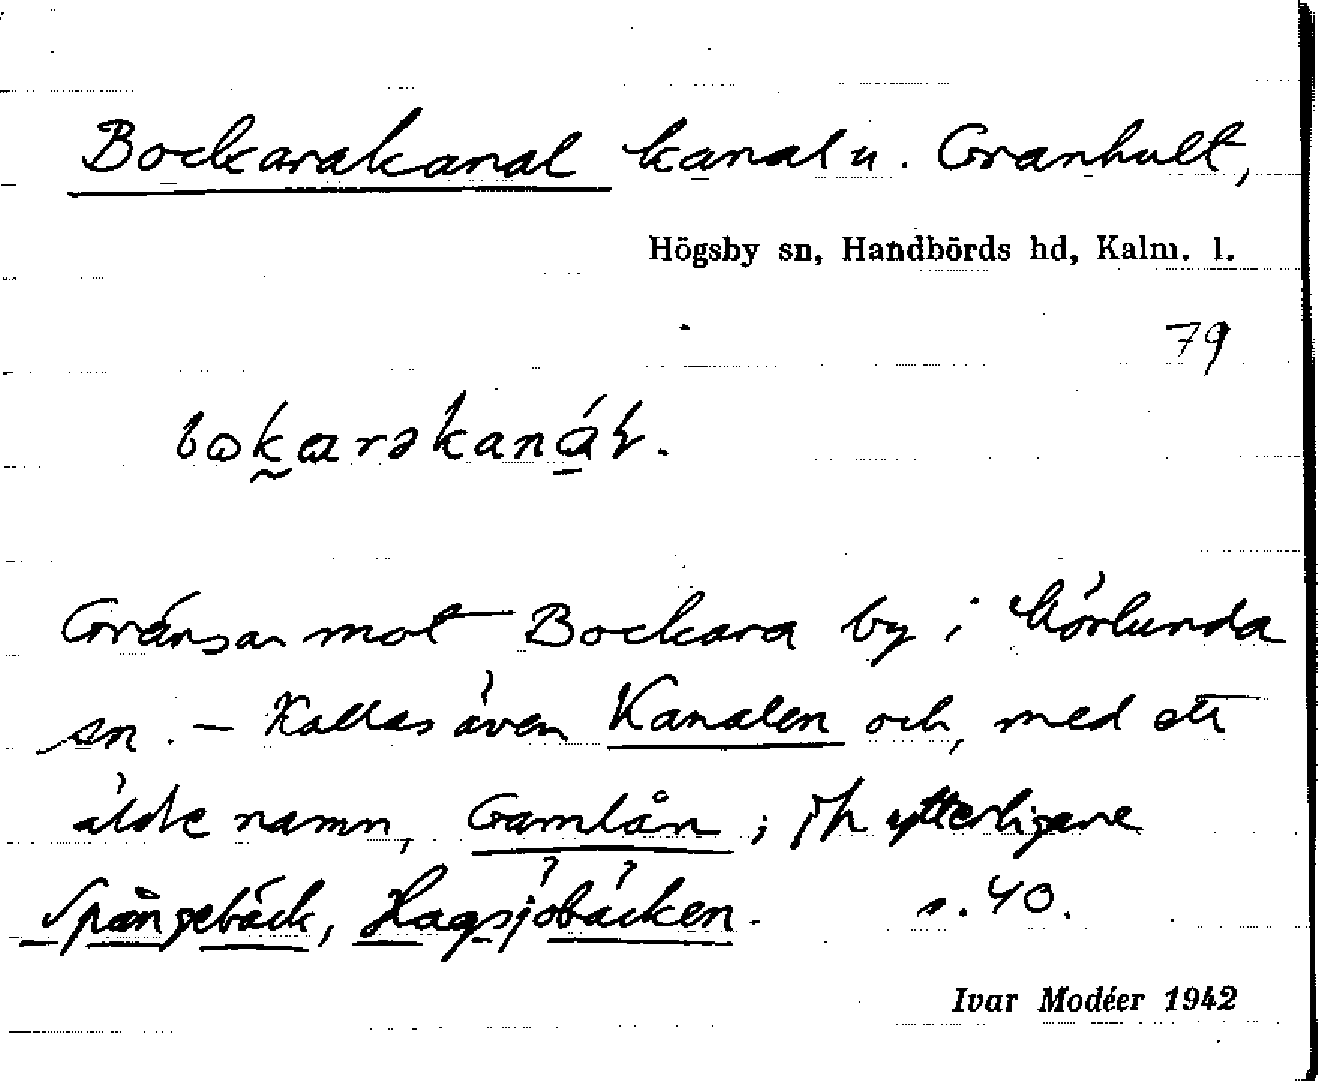 Bockarakanal kanal u. Granhult,
Högsby sn, Handbörds hd, Kalm. l.
79
Gränsar mot Bockara by i Mörlunda
sn. – Kallas även Kanalen och, med ett
äldre namn, Gamlån; jfr ytterligare
Spångebäck, Hagsjöbäcken. s. 40.
Ivar Modéer 1942